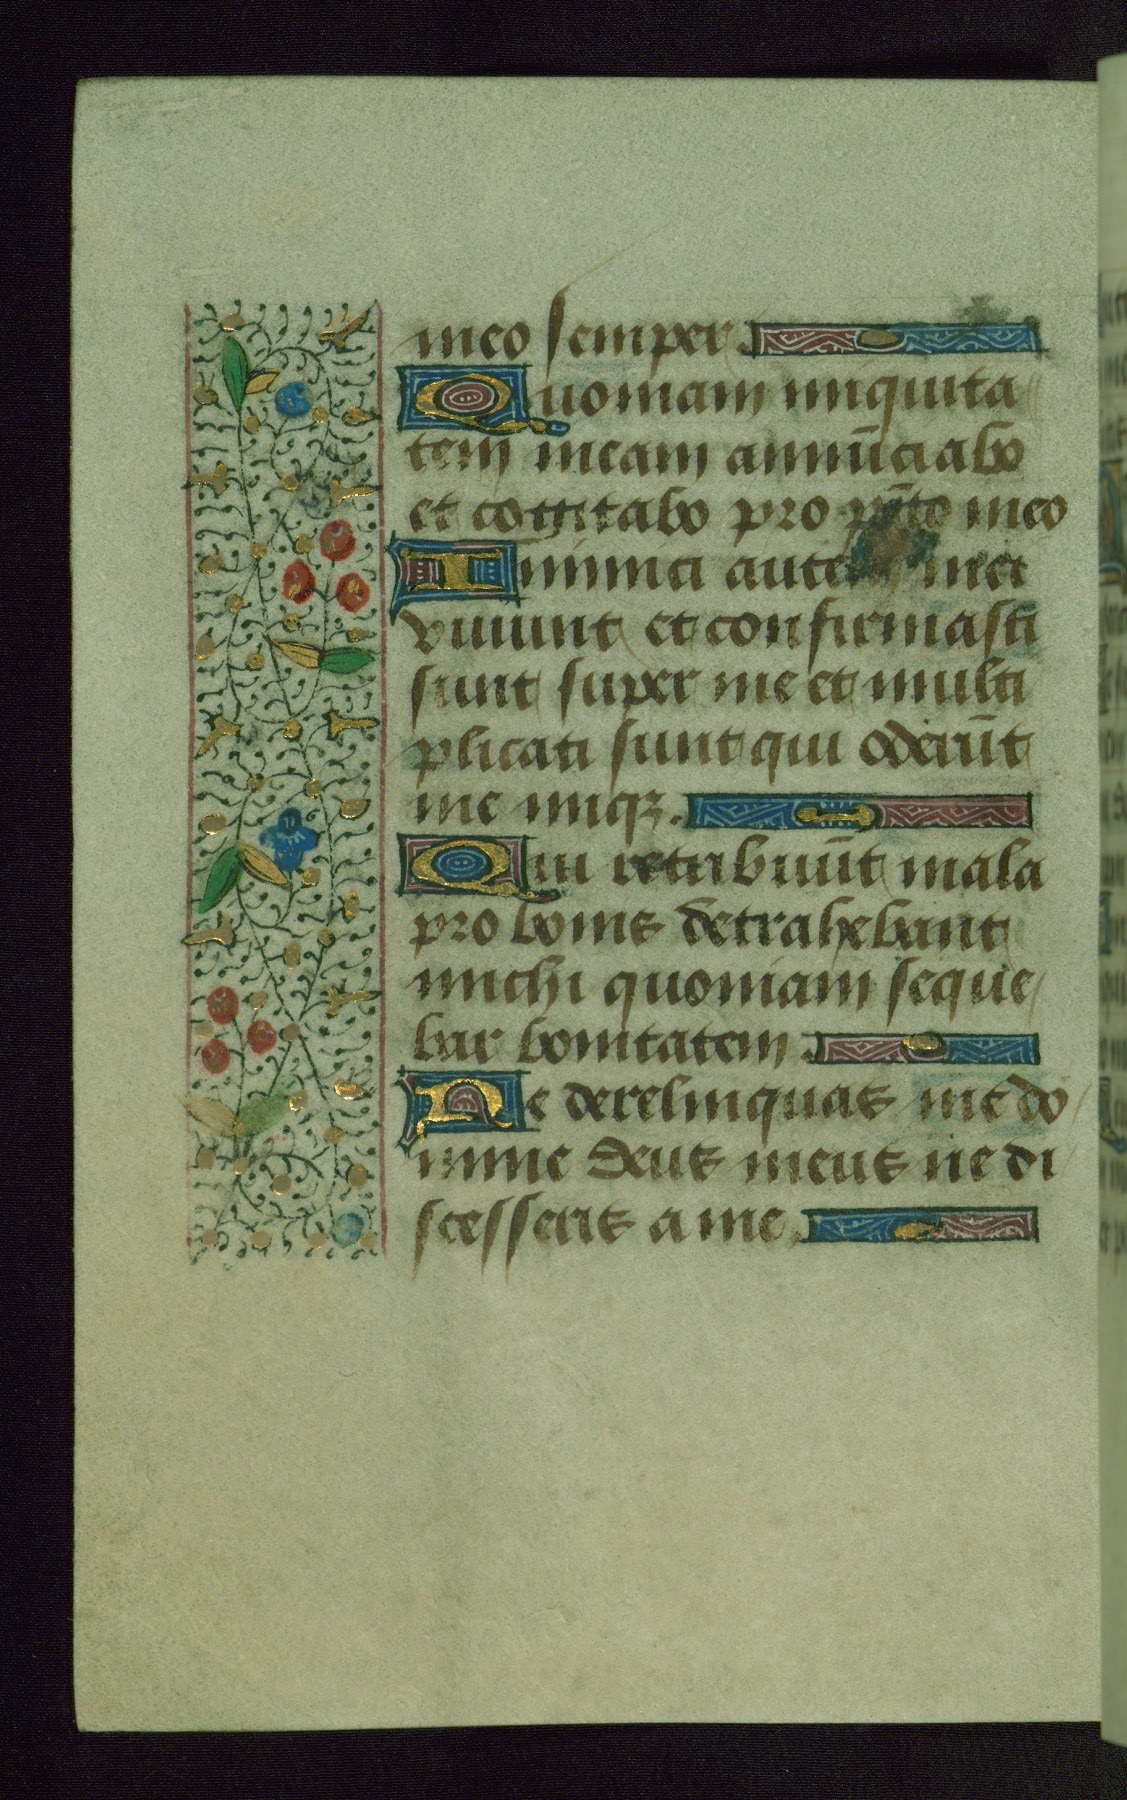 meo semper.
Quoniam iniquita
tem meam annūciabo
et cogitabo pro pcc̄to meo
Inimici autem mei
viuunt et confirmasti
sunt super me et multi
plicati sunt qui oderūt
me iniqꝫ.
Qui retribuūt mala
pro bonis detrahebant
michi quoniam seque
bar bonitatem.
Ne derelinquas me do
mine deus meus ne di
scesseris a me.